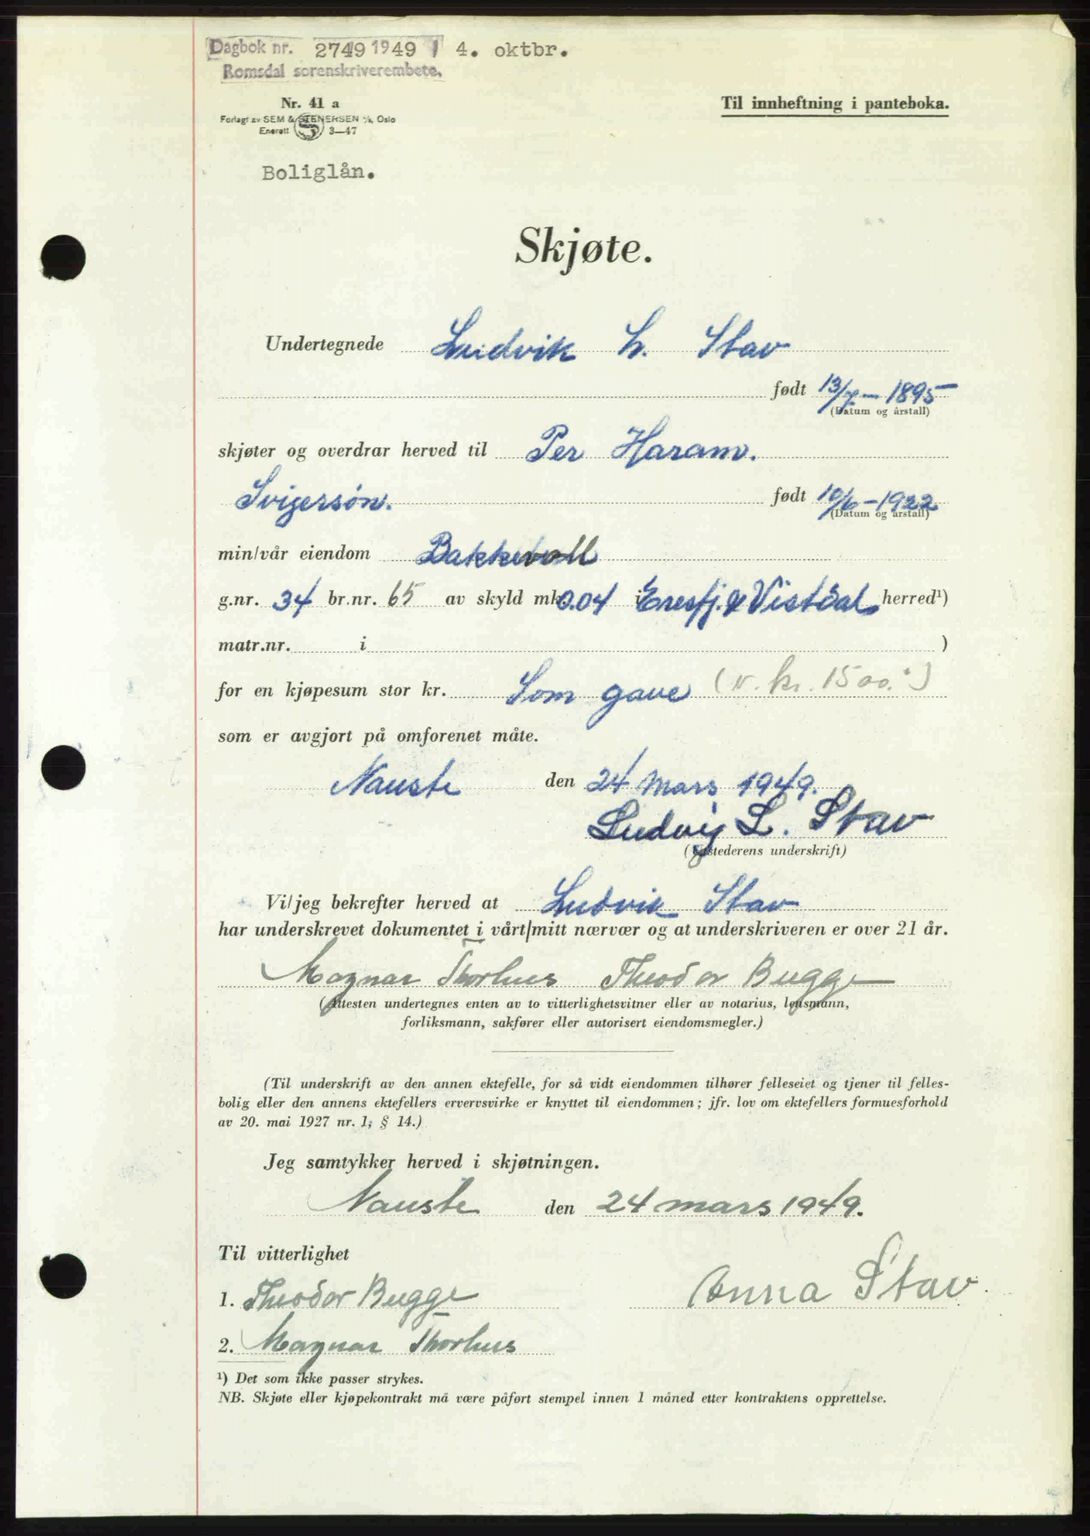 Dagbok nr. 2749 1949 / 4. oktbr.
Romsdal sorenskriverembete.
Nr. 41 a
Til innheftning i panteboka.
Forlagt av SEM & STENERSEN A/S, Oslo
Enerett S 3—47
Boliglån.
Skjøte.
Undertegnede Ludvik L. Stav
født 13/7 – 1895
(Datum og årstall)
skjøter og overdrar herved til Per Haram.
Svigersøn. født 10/6 – 1922
(Datum og årstall)
min/vår eiendom Bakkevoll
g.nr. 34 br.nr. 65 av skyld mk 0.04 i Eresfj. & Vistdal herred¹)
matr.nr. i )
for en kjøpesum stor kr. Som gave (v. kr. 1500.-)
som er avgjort på omforenet måte.
Nauste den 24 mars 1949.
Ludvig L. Stav
(Utstederens underskrift)
Vi/jeg bekrefter herved at Ludvik Stav
har underskrevet dokumentet i vårt/mitt nærvær og at underskriveren er over 21 år.
Magnar Thorhus Theodor Bugge
(Attesten undertegnes enten av to vitterlighetsvitner eller av notarius, lensmann,
forliksmann, sakfører eller autorisert eiendomsmegler.)
(Til underskrift av den annen ektefelle, for så vidt eiendommen tilhører felleseiet og tjener til felles-
bolig eller den annens ektefellers ervervsvirke er knyttet til eiendommen; jfr. lov om ektefellers formuesforhold
av 20. mai 1927 nr. 1, § 14.)
Jeg samtykker herved i skjøtningen.
Nauste den 24 mars 1949.
Til vitterlighet
1. Theodor Bugge Anna Stav.
2. Magnar Thorhus
¹) Det som ikke passer strykes.
NB. Skjøte eller kjøpekontrakt må være påført stempel innen 1 måned etter kontraktens opprettelse.